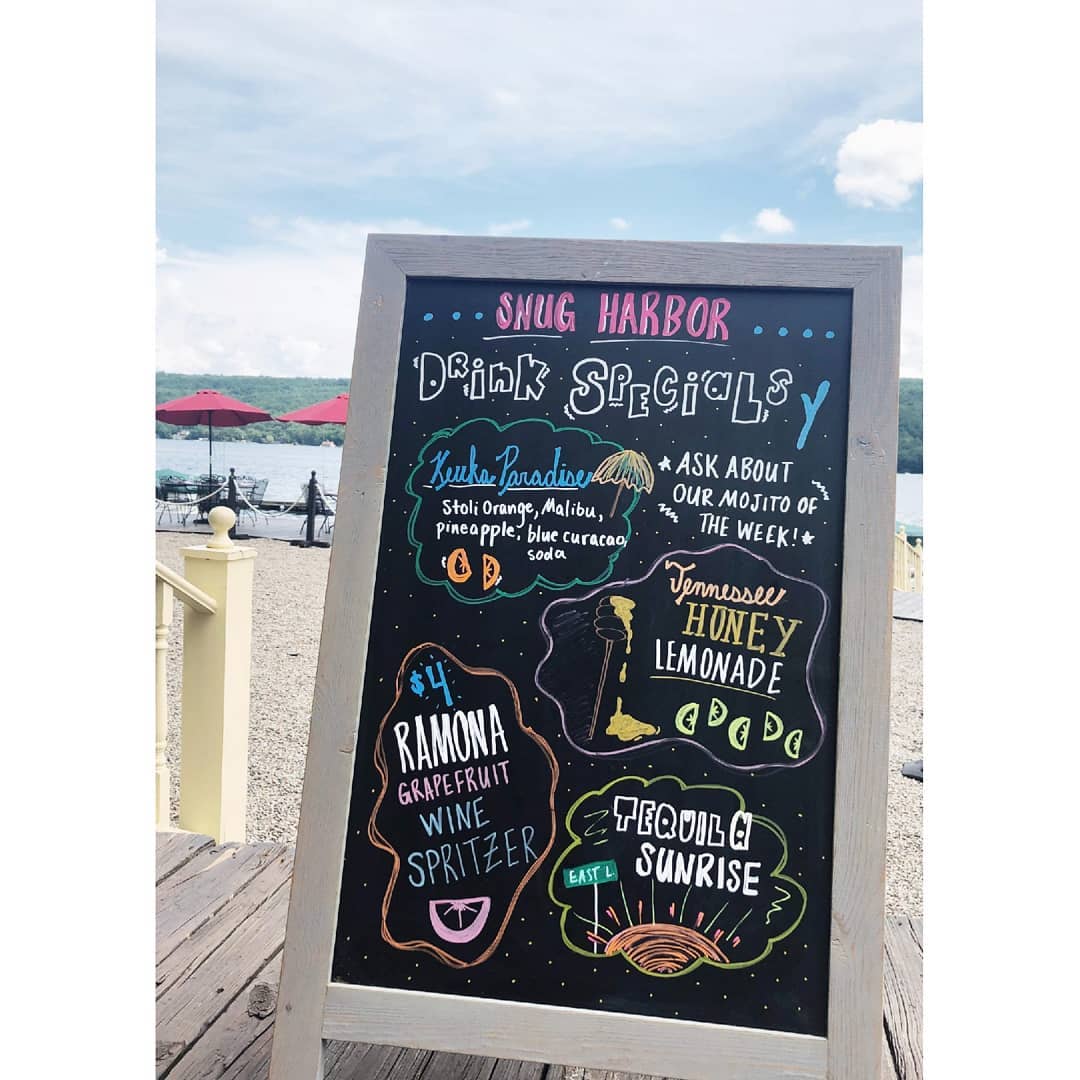 SNUG HARBOR
DRink SPECiaLS
Keuka Paradise
Stoli Orange, Malibu,
pineapple, blue curacao,
soda
* ASK ABOUT
OUR MOJITO OF
THE WEEK! *
Tennessee
HONEY
LEMONADE
$4
RAMONA
GRAPEFRUIT
WINE
SPRITZER
TEQUILA
SUNRISE
EAST L.